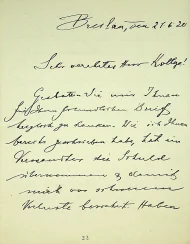 Breslau, den 21.6.20
Sehr verehrter Herr Kollege!
Gestatten Sie mir Ihnen
freundlichen Brief
herzlich zu danken. Wie ich Ihnen
bereits geschrieben habe, hat ein
die Schuld
übernommen & damit
mich vor schwerem
Verluste bewahrt. Haben